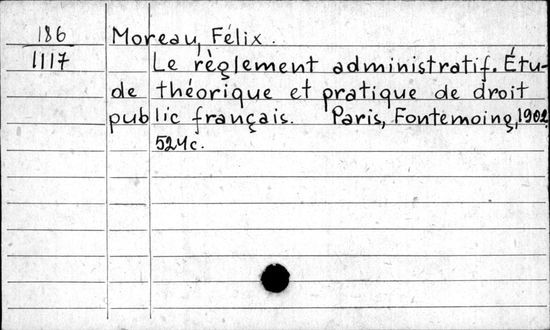 186 Moreau, Félix.
1117 Le règlement administratif. Étu-
de théorique et pratique de droit
public français. Paris, Fontemoing, 1902
524c.